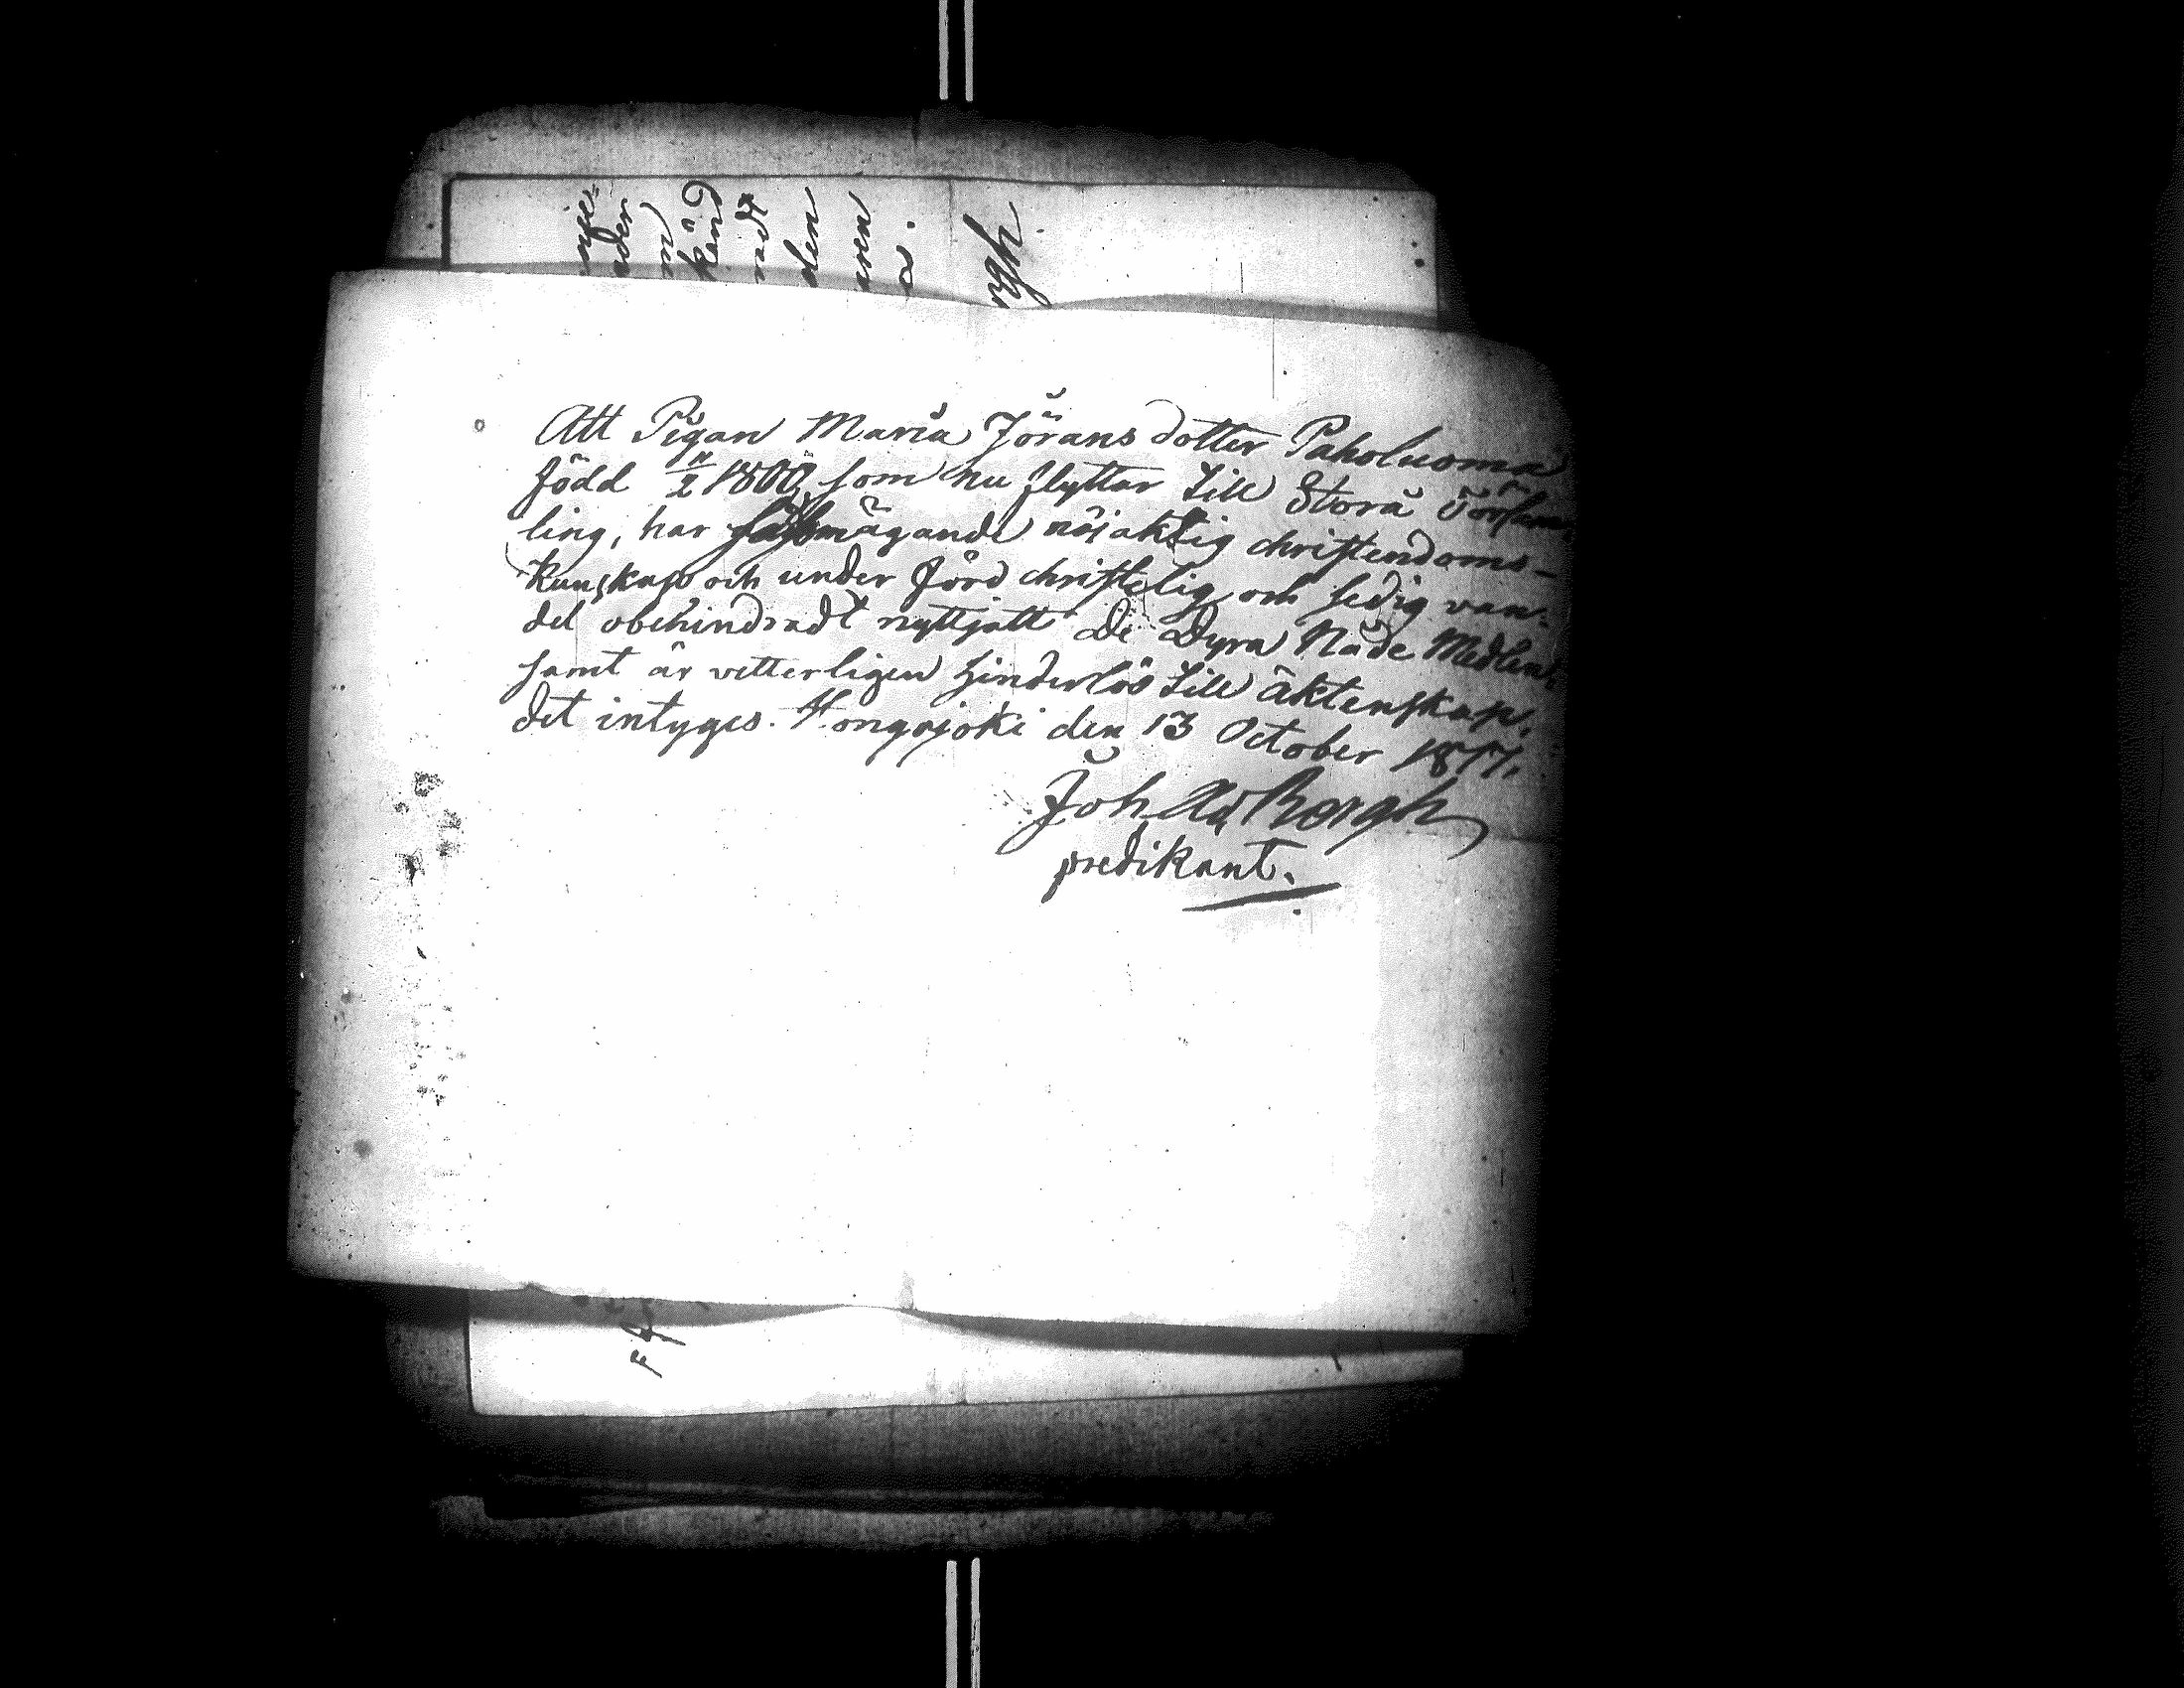 Att Pigan Maria Jörans dotter Paholuoma
född som nu flyttar till Storå Försam-
ling, har ägande nöjaktig christendoms-
kunskap och under förd christelig och sedig van-
del obehindradt nyttjatt De Dyra Nåde Medlen,
samt är vetterligen hinderlös till äktenskap,
det intyges. Hongojoki den 13 October 1877,
Joh Ad Bergh
predikant.